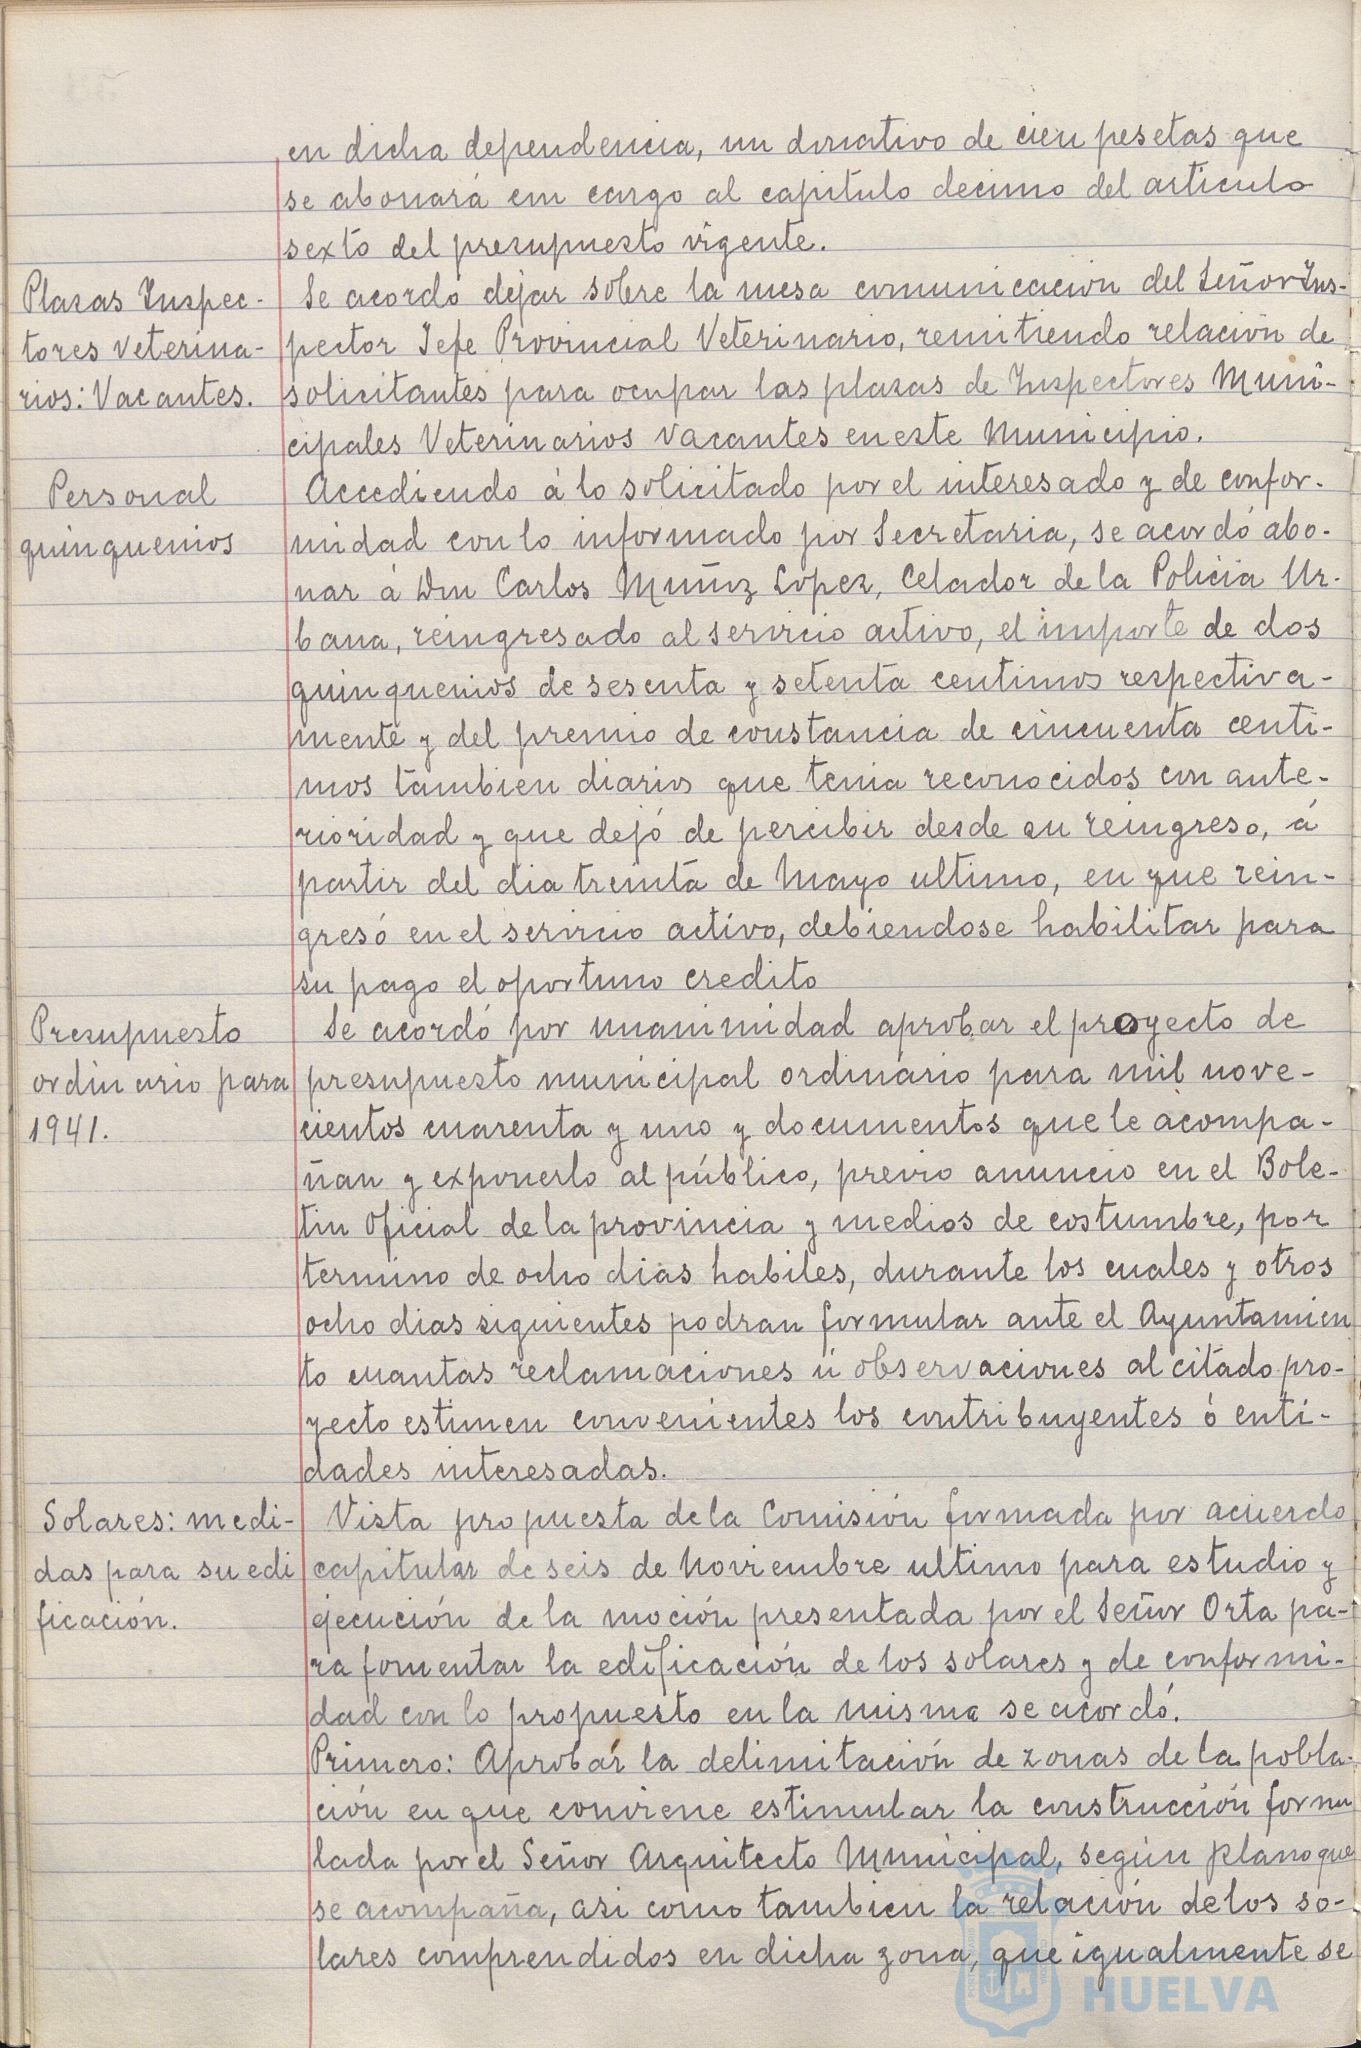 en dicha dependencia, un donativo de cien pesetas que
se abonará con cargo al capitulo decimo del articulo
sexto del presupuesto vigente.
Plazas Inspec-
tores veterina-
rios: Vacantes.
Se acordó dejar sobre la mesa comunicación del Señor Ins-
pector Jefe Provincial Veterinario, remitiendo relación de
solicitantes para ocupar las plazas de Inspectores Muni-
cipales Veterinarios vacantes en este Municipio.
Personal
quinquenios
Accediendo á lo solicitado por el interesado y de confor-
midad con lo informado por Secretaria, se acordó abo-
nar á Don Carlos Muñoz Lopez, Celador de la Policia Ur-
bana, reingresado al servicio activo, el importe de dos
quinquenios de sesenta y setenta centimos respectiva-
mente y del premio de constancia de cincuenta centi-
mos tambien diarios que tenia reconocidos con ante-
rioridad y que dejó de percibir desde su reingreso, á
partir del dia treinta de Mayo ultimo, en que rein-
gresó en el servicio activo, debiendose habilitar para
su pago el oportuno credito
Presupuesto
ordinario para
1941.
Se acordó por unanimidad aprobar el proyecto de
presupuesto municipal ordinario para mil nove-
cientos cuarenta y uno y documentos que le acompa-
ñan y exponerlo al público, previo anuncio en el Bole-
tin Oficial de la provincia y medios de costumbre, por
termino de ocho dias habiles, durante los cuales y otros
ocho dias siguientes podran formular ante el Ayuntamien
to cuantas reclamaciones ú observaciones al citado pro-
yecto estimen convenientes los contribuyentes ó enti-
dades interesadas.
Solares: medi-
das para su edi
ficación.
Vista propuesta de la Comisión formada por acuerdo
capitular de seis de Noviembre ultimo para estudio y
ejecución de la moción presentada por el Señor Orta pa-
ra fomentar la edificación de los solares y de conformi-
dad con lo propuesto en la misma se acordó.
Primero: Aprobar la delimitación de zonas de la pobla-
ción en que conviene estimular la construcción formu
lada por el Señor Arquitecto Municipal, según plano que
se acompaña, asi como tambien la relación de los so-
lares comprendidos en dicha zona, que igualmente se
HUELVA